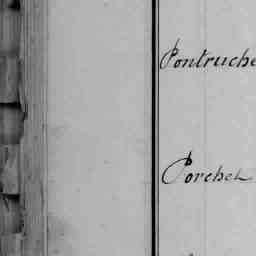 Pontruche
Porchet